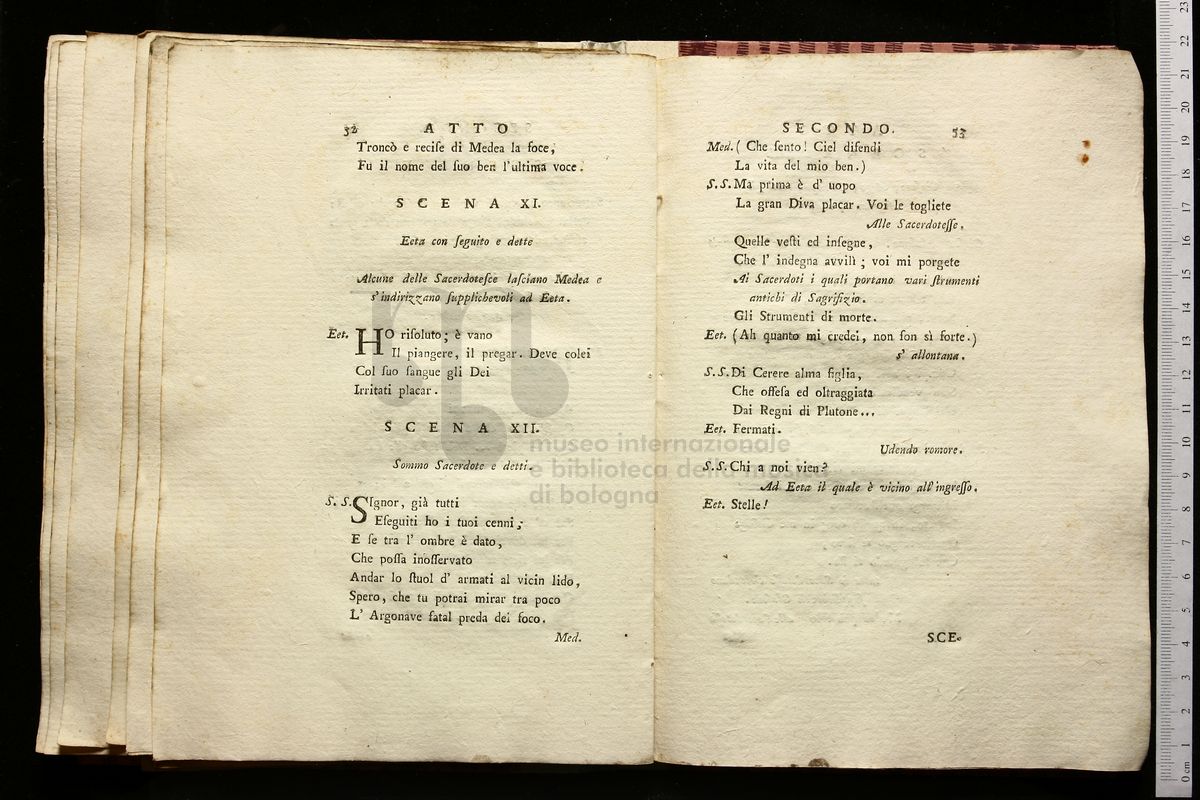 52 ATTO
Troncò e reciſe di Medea la foce,
Fu il nome del ſuo ben l'ultima voce.
SCENA XI.
Eeta con ſeguito e dette
Alcune delle Sacerdoteſce laſciano Medea e
s'indirizzano ſupplichevoli ad Eeta.
Eet. HO riſoluto; è vano
Il piangere, il pregar. Deve colei
Col ſuo ſangue gli Dei
Irritati placar.
SCENA XII.
Sommo Sacerdote e detti.
S. S. SIgnor, già tutti
Eſeguiti ho i tuoi cenni;
E ſe tra l' ombre è dato,
Che poſſa inoſſervato
Andar lo ſtuol d' armati al vicin lido,
Spero, che tu potrai mirar tra poco
L' Argonave fatal preda dei foco.
Med.
SECONDO. 53
Med. ( Che ſento! Ciel difendi
La vita del mio ben.)
S. S. Ma prima è d' uopo
La gran Diva placar. Voi le togliete
Alle Sacerdoteſſe.
Quelle veſti ed inſegne,
Che l' indegna avvilì; voi mi porgete
Ai Sacerdoti i quali portano vari ſtrumenti
antichi di Sagrifizio.
Gli Strumenti di morte.
Eet. (Ah quanto mi credei, non ſon sì forte.)
s' allontana.
S. S. Di Cerere alma figlia,
Che offeſa ed oltraggiata
Dai Regni di Plutone...
Eet. Fermati.
Udendo romore.
S. S. Chi a noi vien?
Ad Eeta il quale è vicino all' ingreſſo.
Eet. Stelle!
SCE-
museo internazionale
e biblioteca della musica
di bologna
0 cm 1 2 3 4 5 6 7 8 9 10 11 12 13 14 15 16 17 18 19 20 21 22 23